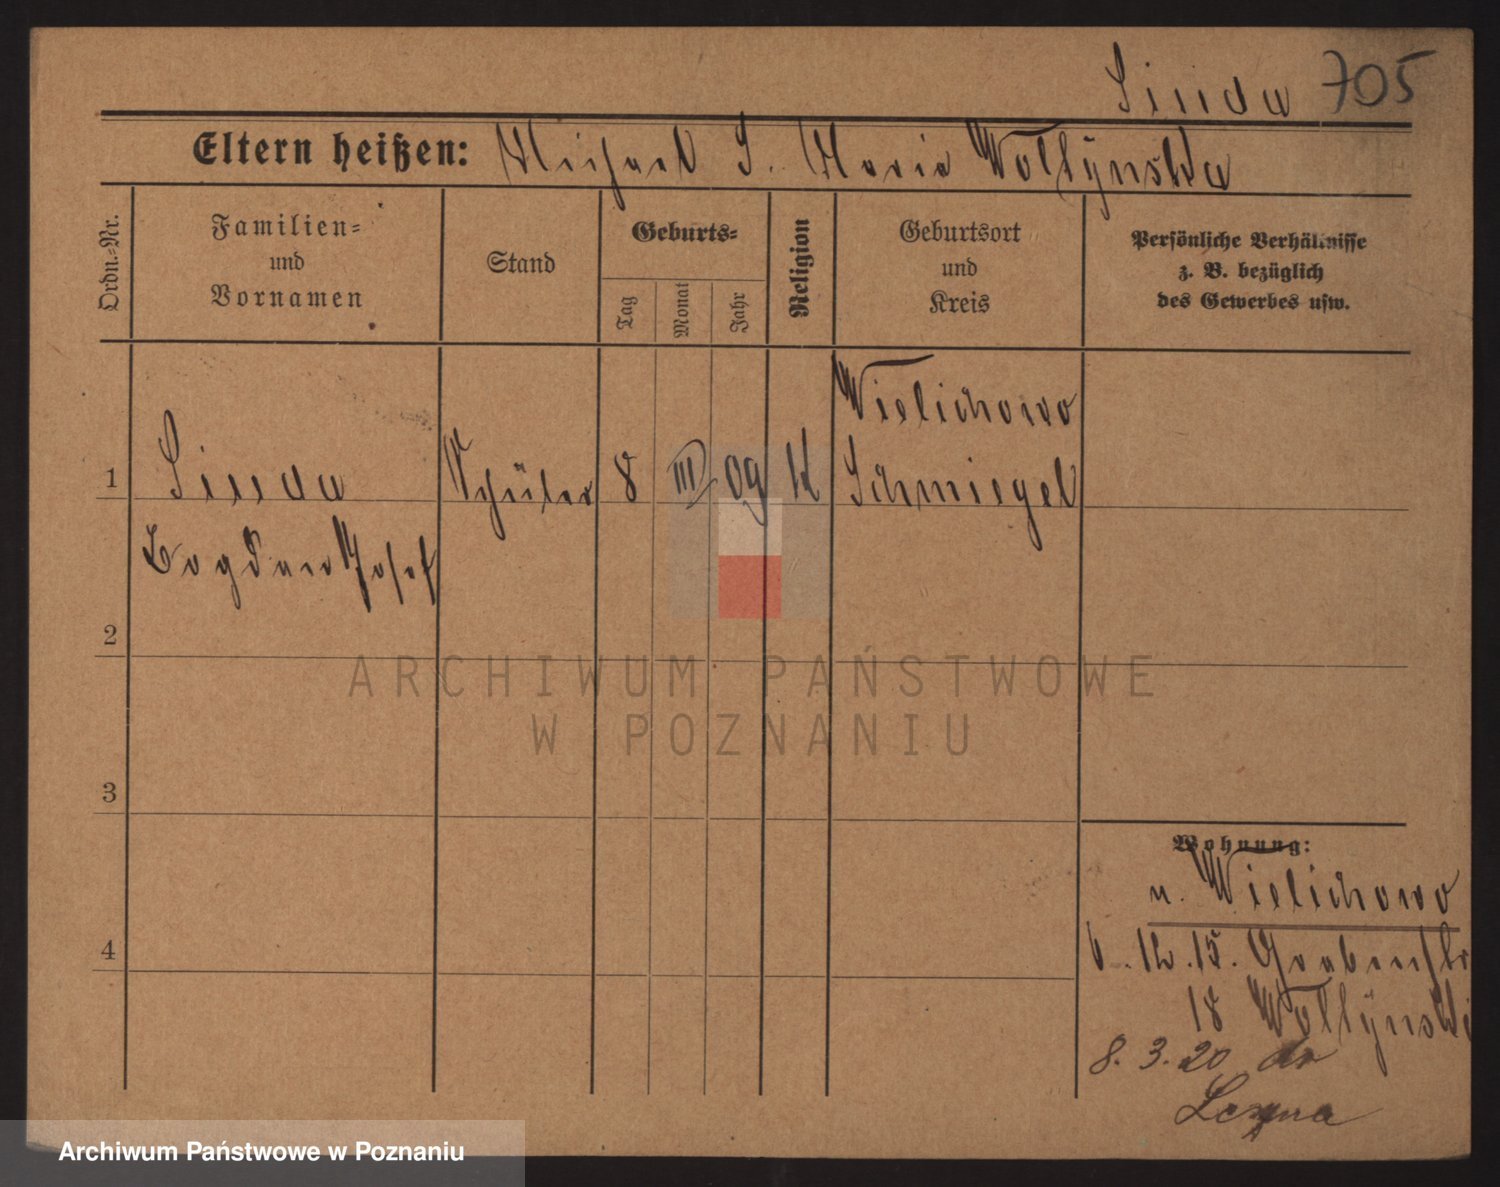 Sinda 705
Eltern heißen: Michael S. Maria Wollÿnska
Ordn.-Nr.
Familien- und Vornamen
Stand
Geburts-
Tag
Monat
Jahr
Religion
Geburtsort und Kreis
Persönliche Verhältnisse
z. B. bezüglich
des Gewerbes usw.
Wielichowo
1 Sinda Schüler 8 III 09 K Schmiegel
Bogdan Josef
2
3
4
Wohnung:
n. Wielichowo
6.12.15. Grabenstr
18 Wollÿnski
8.3.20
ARCHIWUM PAŃSTWOWE
W POZNANIU
Archiwum Państwowe w Poznaniu